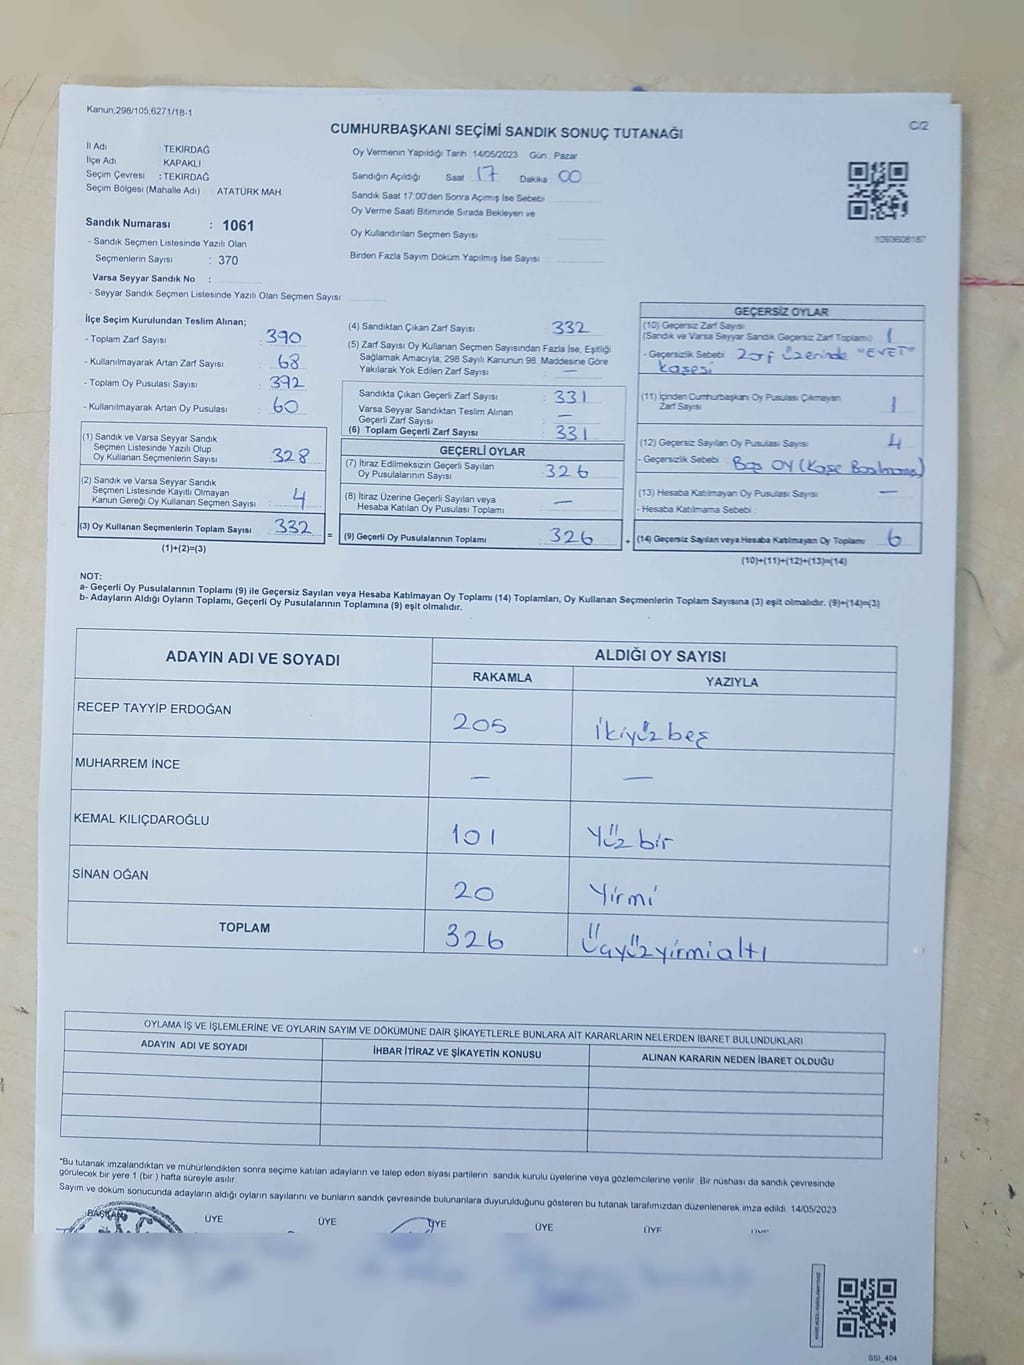 Kanun:298/105,6271/18-1
C/2
CUMHURBAŞKANI SEÇİMİ SANDIK SONUÇ TUTANAĞI
İl Adı TEKİRDAĞ
İlçe Adı : KAPAKLI
Seçim Çevresi : TEKİRDAĞ
Seçim Bölgesi (Mahalle Adı) ATATÜRK MAH.
Sandık Numarası : 1061
- Sandık Seçmen Listesinde Yazılı Olan
Seçmenlerin Sayısı : 370
Varsa Seyyar Sandık No :
- Seyyar Sandık Seçmen Listesinde Yazılı Olan Seçmen Sayısı:
Oy Vermenin Yapıldığı Tarih : 14/05/2023 Gün : Pazar
Sandığın Açıldığı Saat 17 Dakika 00
Sandık Saat 17:00'den Sonra Açımış İse Sebebi :
Oy Verme Saati Bitiminde Sırada Bekleyen ve
Oy Kullandırılan Seçmen Sayısı
Birden Fazla Sayım Döküm Yapılmış İse Sayısı :
1093608187
İlçe Seçim Kurulundan Teslim Alınan;
- Toplam Zarf Sayısı : 390
- Kullanılmayarak Artan Zarf Sayısı : 68
- Toplam Oy Pusulası Sayısı : 392
- Kullanılmayarak Artan Oy Pusulası : 60
(1) Sandık ve Varsa Seyyar Sandık
Seçmen Listesinde Yazılı Olup
Oy Kullanan Seçmenlerin Sayısı : 328
(2) Sandık ve Varsa Seyyar Sandık
Seçmen Listesinde Kayıtlı Olmayan
Kanun Gereği Oy Kullanan Seçmen Sayısı : 4
(3) Oy Kullanan Seçmenlerin Toplam Sayısı : 332
(1)+(2)=(3)
(4) Sandıktan Çıkan Zarf Sayısı : 332
(5) Zarf Sayısı Oy Kullanan Seçmen Sayısından Fazla İse, Eşitliği
Sağlamak Amacıyla; 298 Sayılı Kanunun 98. Maddesine Göre
Yakılarak Yok Edilen Zarf Sayısı : —
Sandıkta Çıkan Geçerli Zarf Sayısı : 331
Varsa Seyyar Sandıktan Teslim Alınan
Geçerli Zarf Sayısı : —
(6) Toplam Geçerli Zarf Sayısı : 331
GEÇERLİ OYLAR
(7) İtiraz Edilmeksizin Geçerli Sayılan
Oy Pusulalarının Sayısı : 326
(8) İtiraz Üzerine Geçerli Sayılan veya
Hesaba Katılan Oy Pusulası Toplamı : —
= (9) Geçerli Oy Pusulalarının Toplamı : 326
GEÇERSİZ OYLAR
(10) Geçersiz Zarf Sayısı
(Sandık ve Varsa Seyyar Sandık Geçersiz Zarf Toplamı) : 1
- Geçersizlik Sebebi : Zarf üzerinde "EVET"
kaşesi
(11) İçinden Cumhurbaşkanı Oy Pusulası Çıkmayan
Zarf Sayısı 1
(12) Geçersiz Sayılan Oy Pusulası Sayısı 4
- Geçersizlik Sebebi : Boş OY (Kaşe Basılmamış)
(13) Hesaba Katılmayan Oy Pusulası Sayısı —
- Hesaba Katılmama Sebebi :
+ (14) Geçersiz Sayılan veya Hesaba Katılmayan Oy Toplamı : 6
(10)+(11)+(12)+(13)=(14)
NOT:
a- Geçerli Oy Pusulalarının Toplamı (9) ile Geçersiz Sayılan veya Hesaba Katılmayan Oy Toplamı (14) Toplamları, Oy Kullanan Seçmenlerin Toplam Sayısına (3) eşit olmalıdır. (9)+(14)=(3)
b- Adayların Aldığı Oyların Toplamı, Geçerli Oy Pusulalarının Toplamına (9) eşit olmalıdır.
ADAYIN ADI VE SOYADI ALDIĞI OY SAYISI
RAKAMLA YAZIYLA
RECEP TAYYİP ERDOĞAN 205 ikiyüzbeş
MUHARREM İNCE — —
KEMAL KILIÇDAROĞLU 101 Yüzbir
SİNAN OĞAN 20 Yirmi
TOPLAM 326 Üçyüzyirmialtı
OYLAMA İŞ VE İŞLEMLERİNE VE OYLARIN SAYIM VE DÖKÜMÜNE DAİR ŞİKAYETLERLE BUNLARA AİT KARARLARIN NELERDEN İBARET BULUNDUKLARI
ADAYIN ADI VE SOYADI İHBAR İTİRAZ VE ŞİKAYETİN KONUSU ALINAN KARARIN NEDEN İBARET OLDUĞU
*Bu tutanak imzalandıktan ve mühürlendikten sonra seçime katılan adayların ve talep eden siyasi partilerin sandık kurulu üyelerine veya gözlemcilerine verilir. Bir nüshası da sandık çevresinde
görülecek bir yere 1 (bir ) hafta süreyle asılır.
Sayım ve döküm sonucunda adayların aldığı oyların sayılarını ve bunların sandık çevresinde bulunanlara duyurulduğunu gösteren bu tutanak tarafımızdan düzenlenerek imza edildi. 14/05/2023
BAŞKAN ÜYE ÜYE ÜYE ÜYE ÜYE ÜYE
SSI_404